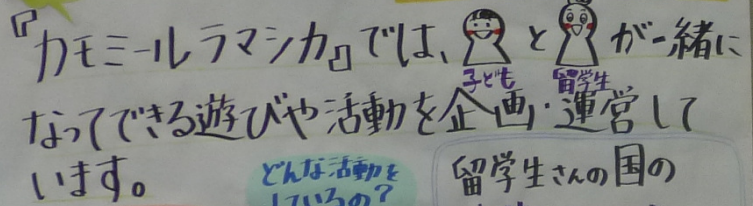 『カモミールラマシカ』では、子どもと留学生が一緒に
なってできる遊びや活動を企画・運営して
います。
どんな活動を
しているの?
留学生さんの国の